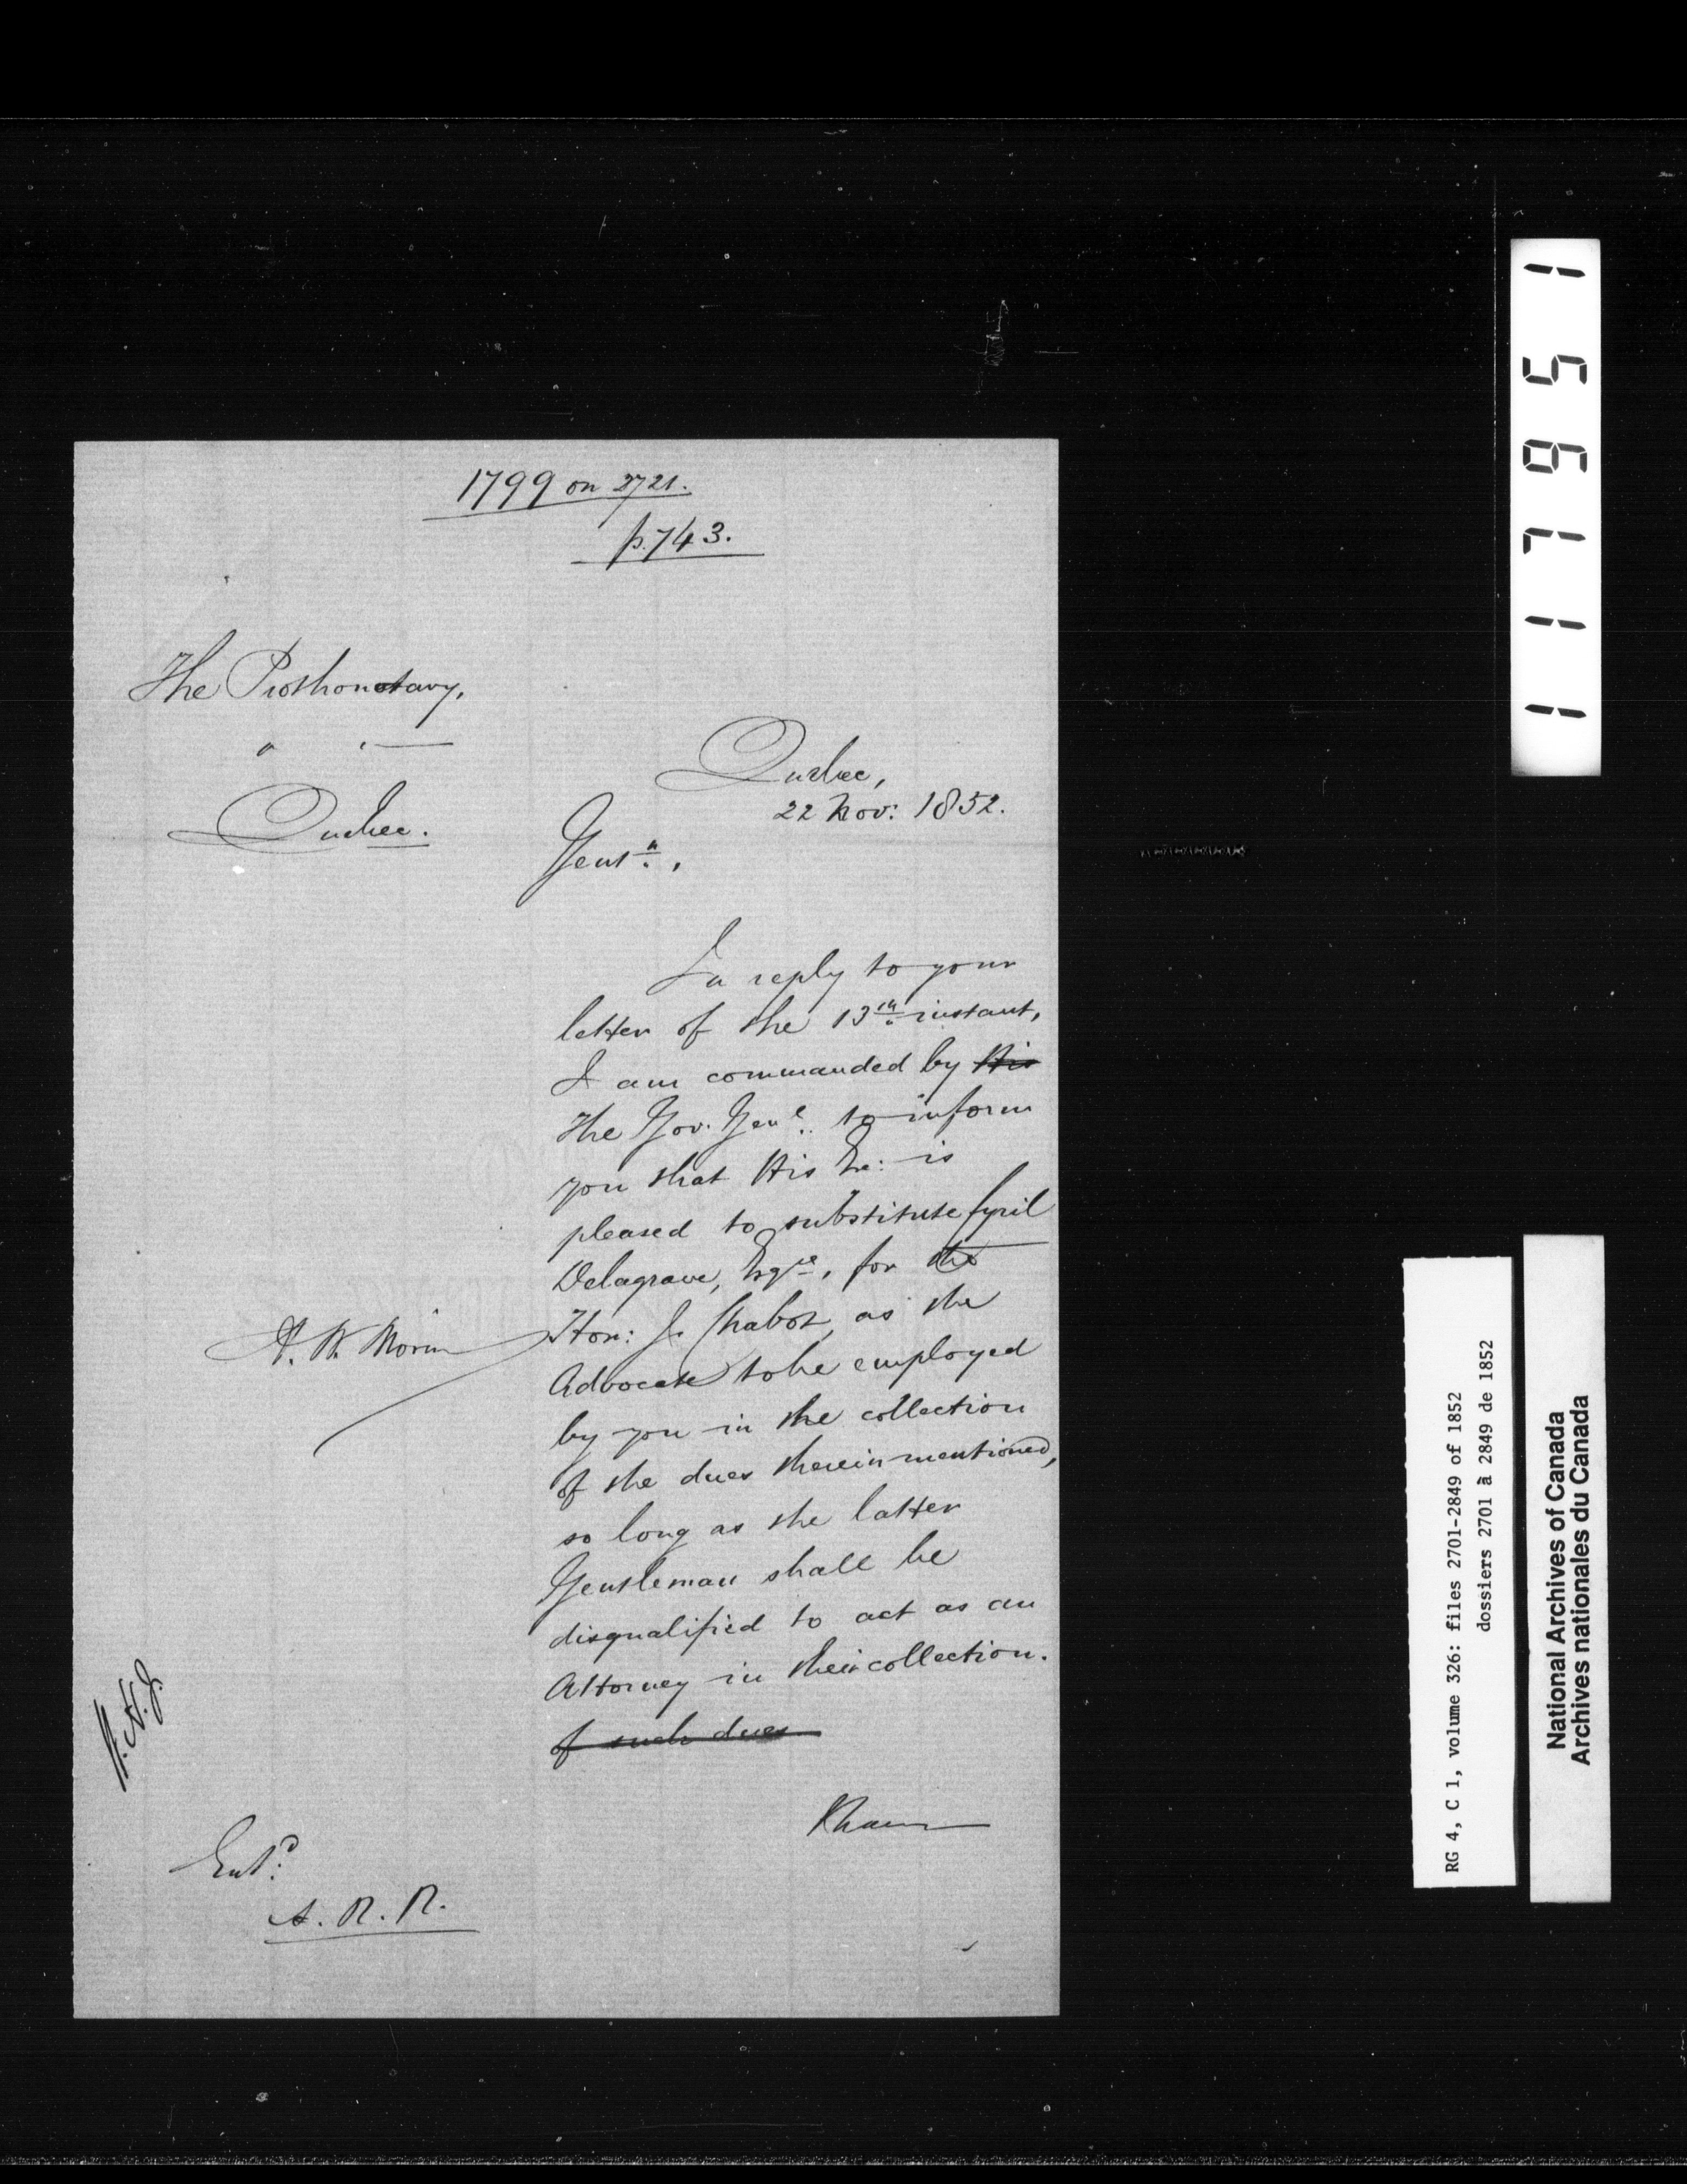 1799 on 2721.
p. 743.
The Prothonotary,
Quebec.
Quebec,
22 Nov: 1852.
Gentn.,
In reply to your
letter of the 13th instant,
I am commanded by His
The Gov. Genl. to inform
you that His Ex: is
pleased to substitute Cyril
Delagrave, Esqre, for the
Hon: J. Chabot, as the
Advocate to be employed
by you in the collection
of the dues therein mentioned,
so long as the latter
Gentleman shall be
disqualified to act as an
Attorney in their collection.
of such dues
A. N. Morin
Entd:
A. R. R.
117951
RG 4, C 1, volume 326: files 2701-2849 of 1852
dossiers 2701 à 2849 de 1852
National Archives of Canada
Archives nationales du Canada